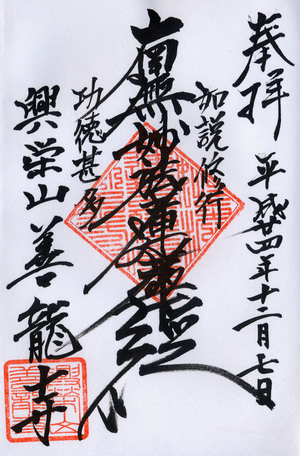 奉拝
平成廿四年十二月七日
如説修行
南無妙法蓮華経
功徳甚多
興栄山善龍寺